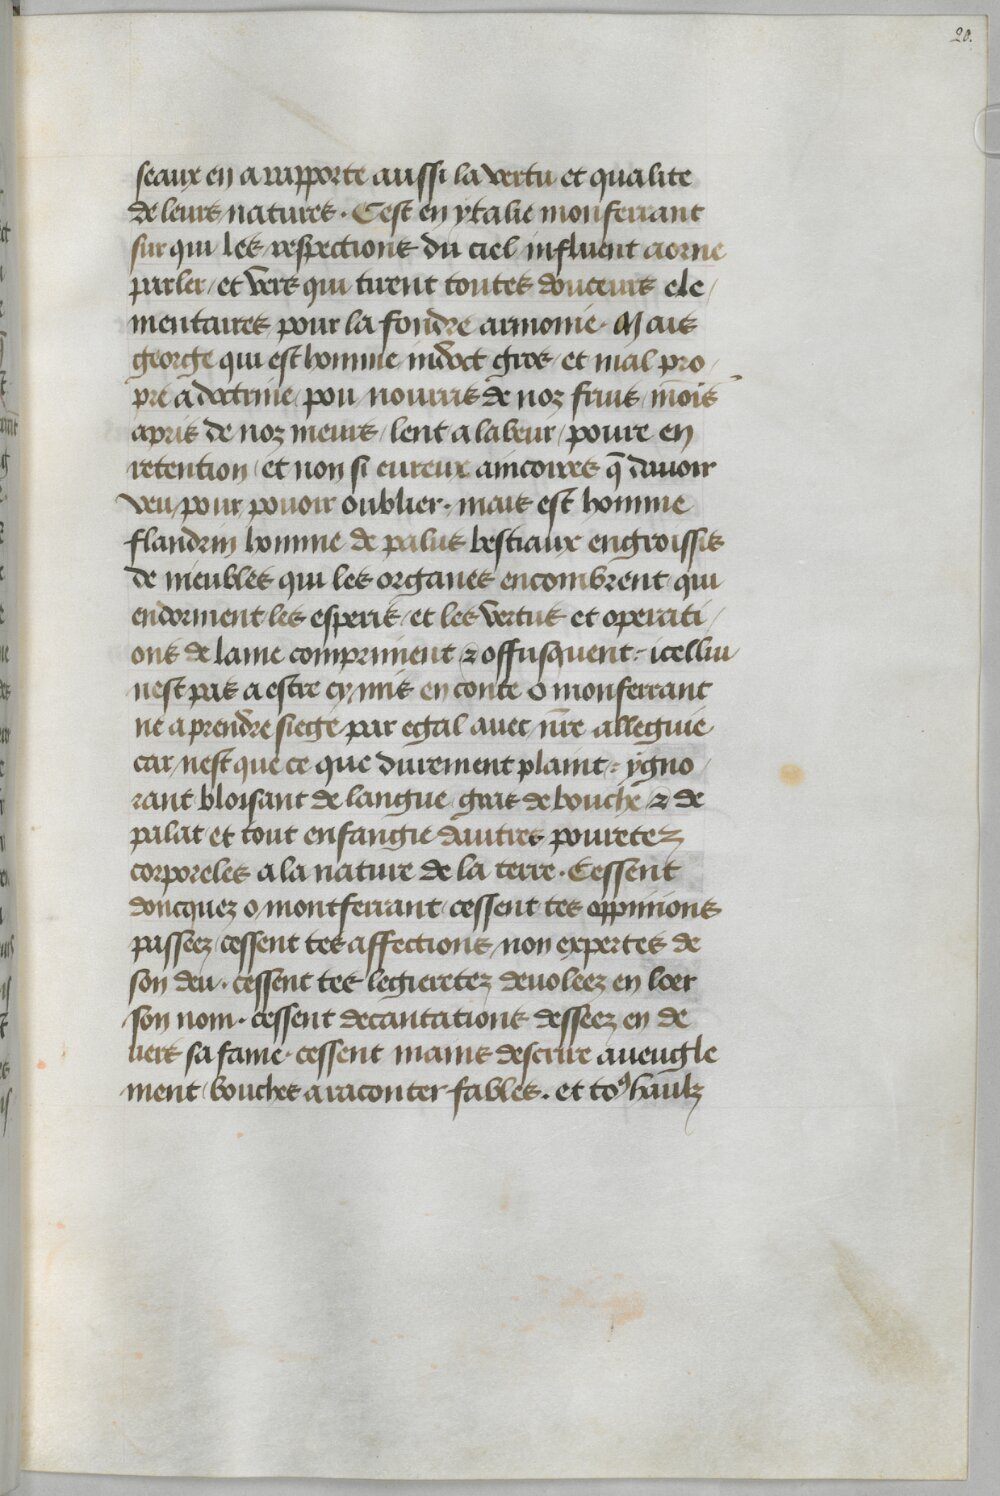 20.
seaux en a rapporte aussi la vertu et qualite
de leurs natures. C'est en ytalie monferrant
sur qui les respections du ciel influent aorne
parler / et vers qui tirent toutes douceurs ele /
mentaires pour la fondre armonie. Mais
george qui est homme indoct gros et mal pro /
pre a doctrine / pou nourris de noz fruis / mois̄
apris de noz meurs / lent a labeur / poure en
retention / et non si eureux aincoires q̄ davoir
veu / pour pouoir oublier. mais est homme
flandrin homme de palus bestiaux engroissis
de meubles qui les organes encombrent qui
endorment les esperis / et les vertus et operati /
ons de lame compriment & offusquent. icellui
nest pas a estre cy mis en conte o monferrant
ne a prendre siege par egal avec nr̄e alleguie
car / nest que ce que durement plaint. ygno /
rant bloisant de langue gras de bouche & de
palat et tout enfangie dautres pouretez
corporeles a la nature de la terre. Cessent
doncquez o montferrant cessent tes oppinions
passeez / cessent tes affections non expertes de
son deu. cessent tes legieretez devoleez en loer
son nom. cessent decantations desseez en de
vers sa fame. cessent mains descrire aveugle
ment / bouches a raconter fables. et to⁹ haulz